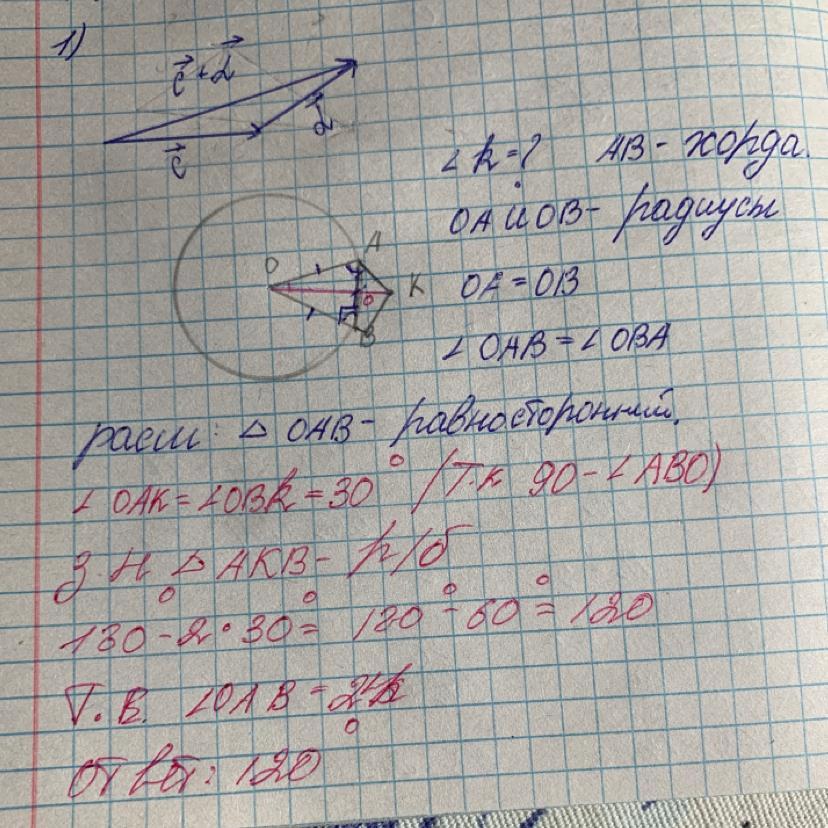 1)
c⃗ + d⃗
d⃗
c⃗
∠k = ? AB - хорда.
OA и OB - радиусы
A
O
K
B
OA = OB
∠OAB = ∠OBA
расм: △ OAB - равносторонний.
∠OAK = ∠OBK = 30° (т.к 90 - ∠ABO)
З.Н △ AKB - р/б
180° - 2 · 30° = 180° - 60° = 120
Т.В. ∠OAB =
ответ: 120°